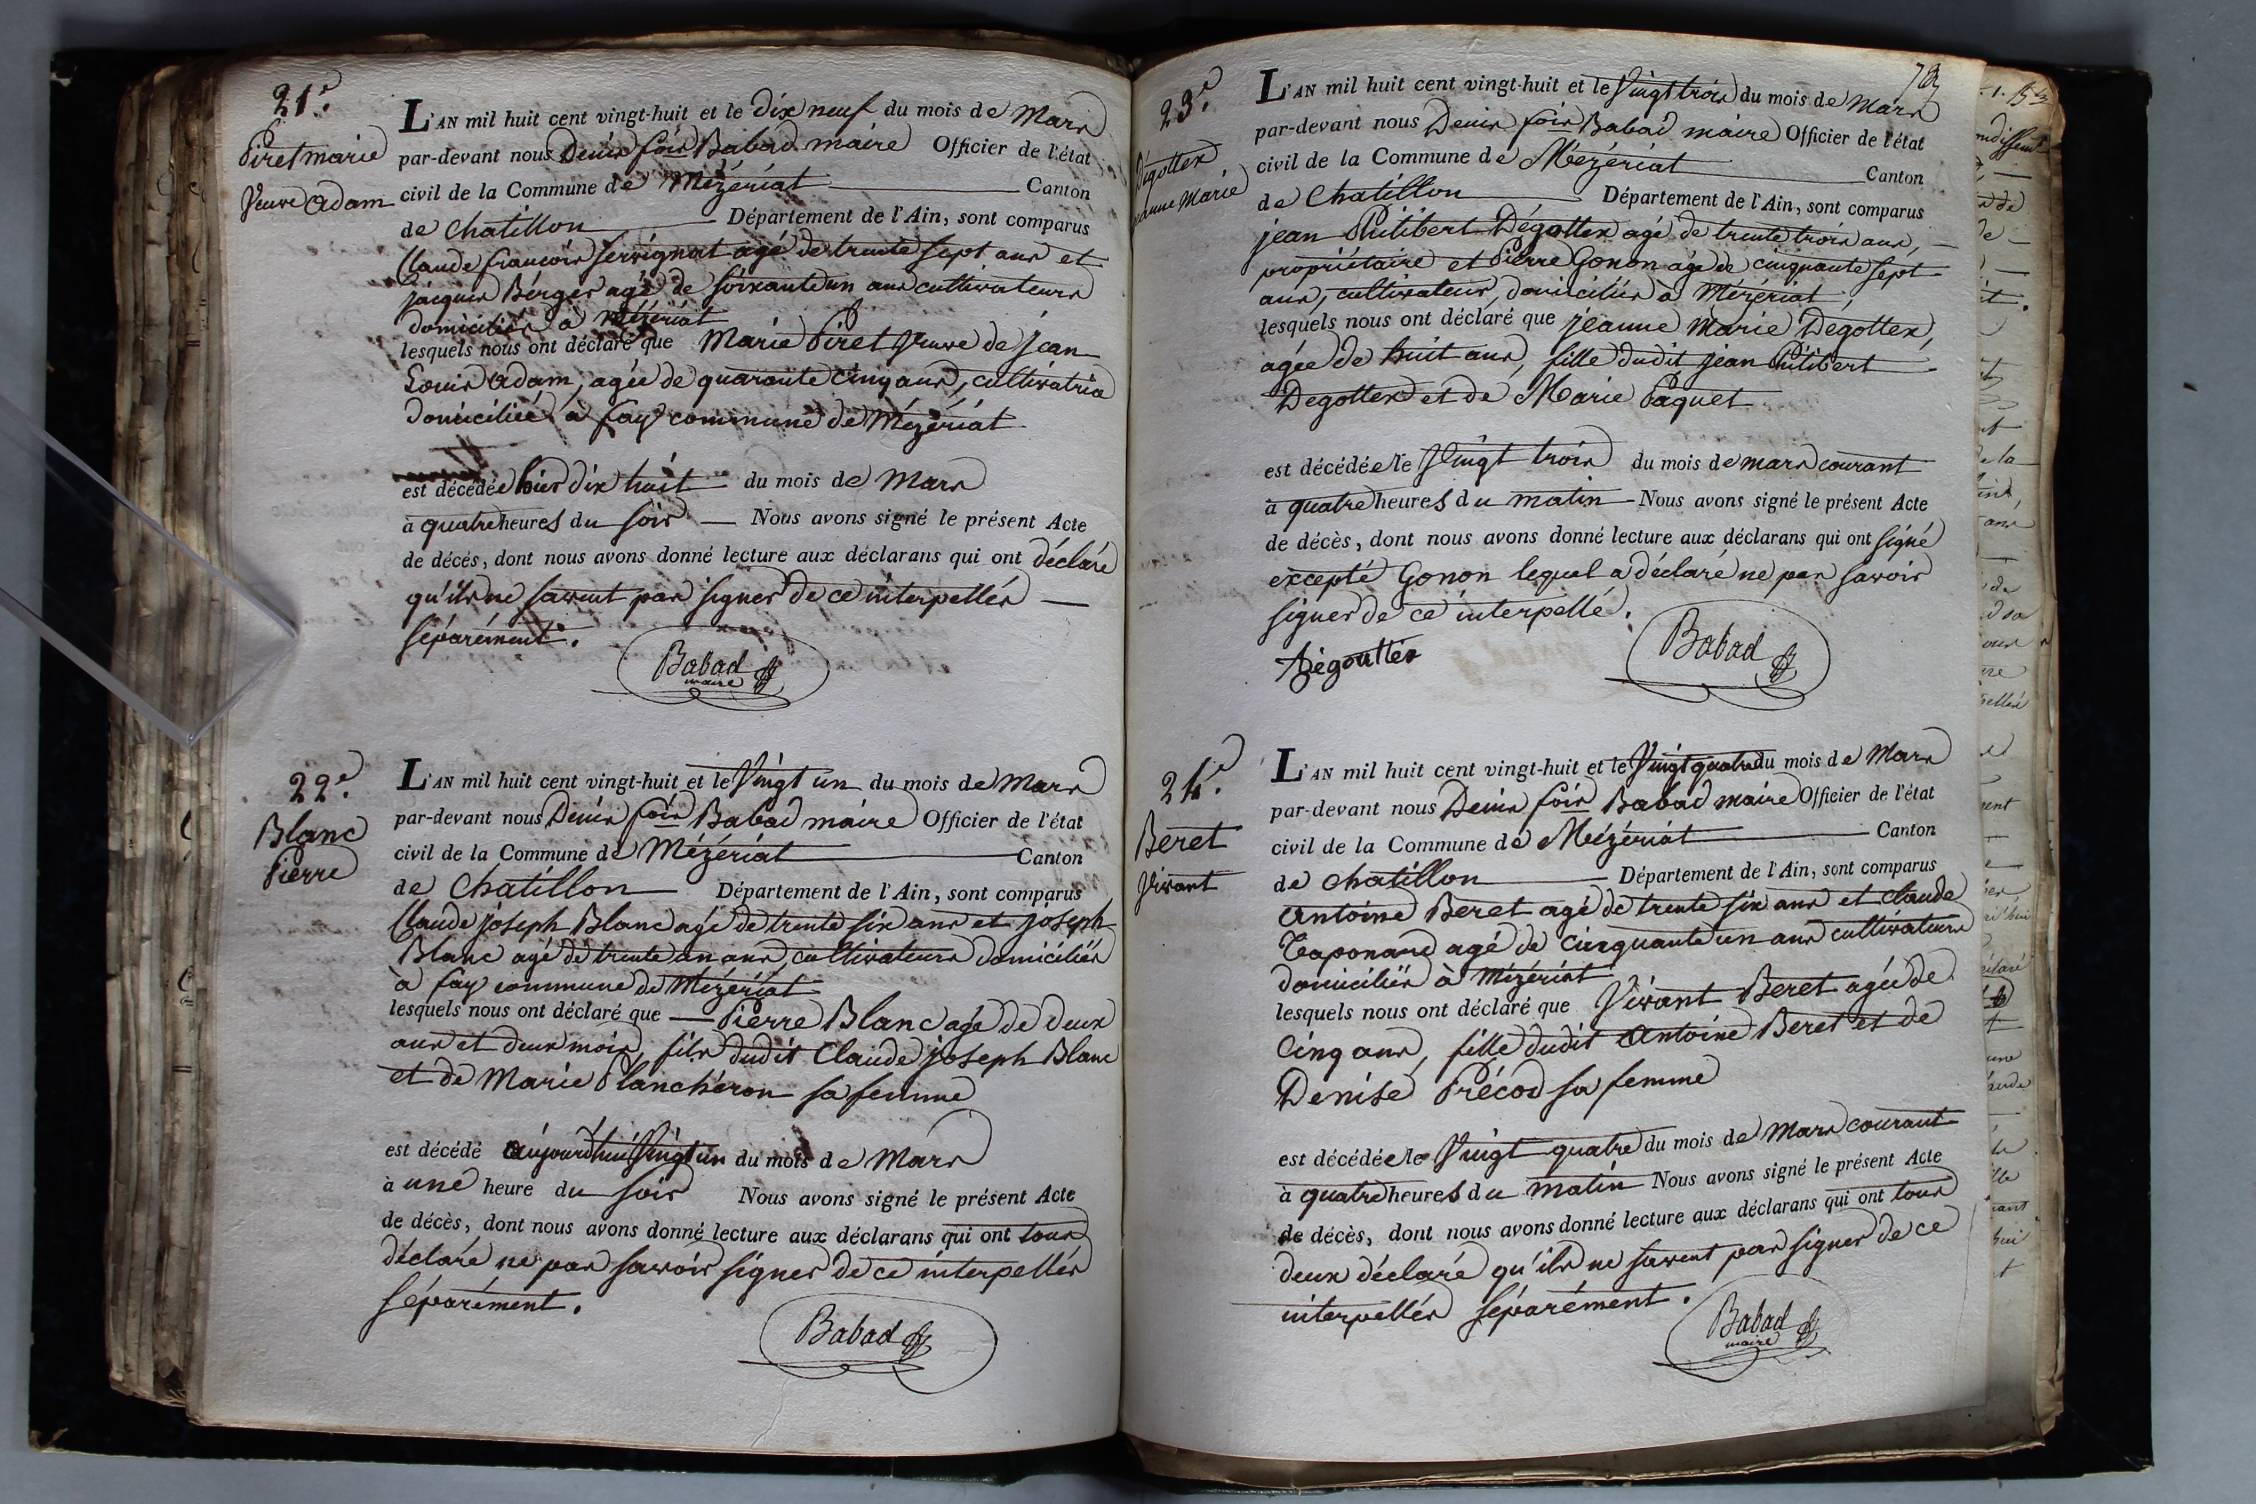 21.e
Piret marie
Veuve Adam
L'AN mil huit cent vingt-huit et le dix neuf du mois de Mars
par-devant nous Denis fois Babad maire Officier de l'état
civil de la Commune de Mézériat Canton
de Chatillon Département de l'Ain, sont comparus
Claude françois Servignat agé de trente sept ans et
jacques Berger agé de soixante un ans cultivateurs
domiciliés à Mézériat
lesquels nous ont déclaré que Marie Piret Veuve de jean
Louis Adam, agée de quarante cinq ans, cultivatrice
domiciliée à fay commune de Mézériat
est décédée hier dix huit du mois de Mars
à quatre heures du soir Nous avons signé le présent Acte
de décès, dont nous avons donné lecture aux déclarans qui ont déclaré
qu'ils ne savent pas signer de ce interpellés
séparément.
Babad
maire
22.e
Blanc
Pierre
L'AN mil huit cent vingt-huit et le Vingt un du mois de Mars
par-devant nous Denis fois Babad maire Officier de l'état
civil de la Commune de Mézériat Canton
de Chatillon Département de l'Ain, sont comparus
Claude joseph Blanc agé de trente six ans et joseph
Blanc agé de trente un ans, cultivateurs domiciliés
à fay commune de Mézériat
lesquels nous ont déclaré que Pierre Blanc agé de deux
ans et deux mois, fils dudit Claude joseph Blanc
et de Marie Planchéron sa femme
est décédé aujourd'hui Vingt un du mois de Mars
à une heure du soir Nous avons signé le présent Acte
de décès, dont nous avons donné lecture aux déclarans qui ont tous
déclaré ne pas savoir signer de ce interpellés
séparément.
Babad
73
23.e
Dégottex
Jeanne Marie
L'AN mil huit cent vingt-huit et le Vingt trois du mois de Mars
par-devant nous Denis fois Babad maire Officier de l'état
civil de la Commune de Mézériat Canton
de Chatillon Département de l'Ain, sont comparus
jean Philibert Dégottex agé de trente trois ans,
propriétaire et Pierre Gonon agé de cinquante sept
ans, cultivateur, domiciliés à Mézériat,
lesquels nous ont déclaré que jeanne Marie Dégottex,
agée de huit ans, fille dudit jean Philibert
Degottex et de Marie Paquet
est décédée le Vingt trois du mois de mars courant
à quatre heures du matin Nous avons signé le présent Acte
de décès, dont nous avons donné lecture aux déclarans qui ont signé
excepté Gonon lequel a déclaré ne pas savoir
signer de ce interpellé.
Dégouttex
Babad
24.e
Beret
Vivant
L'AN mil huit cent vingt-huit et le Vingt quatre du mois de Mars
par-devant nous Denis fois Babad maire Officier de l'état
civil de la Commune de Mézériat Canton
de Chatillon Département de l'Ain, sont comparus
Antoine Beret agé de trente six ans et Claude
Taponard agé de Cinquante un ans cultivateurs
domiciliés à Mézériat
lesquels nous ont déclaré que Vivant Beret agée de
Cinq ans, fille dudit Antoine Beret et de
Denise Précod sa femme
est décédée le Vingt quatre du mois de Mars courant
à quatre heures du matin Nous avons signé le présent Acte
de décès, dont nous avons donné lecture aux déclarans qui ont tous
deux déclaré qu'ils ne savent pas signer de ce
interpellés séparément.
Babad
maire